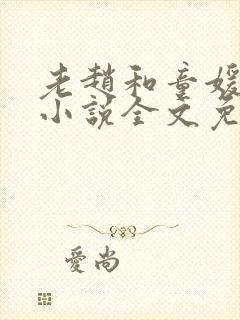 老趙和童媛
小說全文免
愛尚